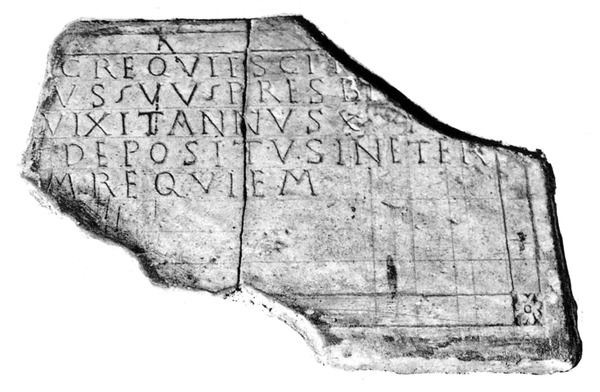 A
C REQVIESCI
VS SVVS PRESB
VIXIT ANNVS
DEPOSITVS IN ETER
M REQVIEM